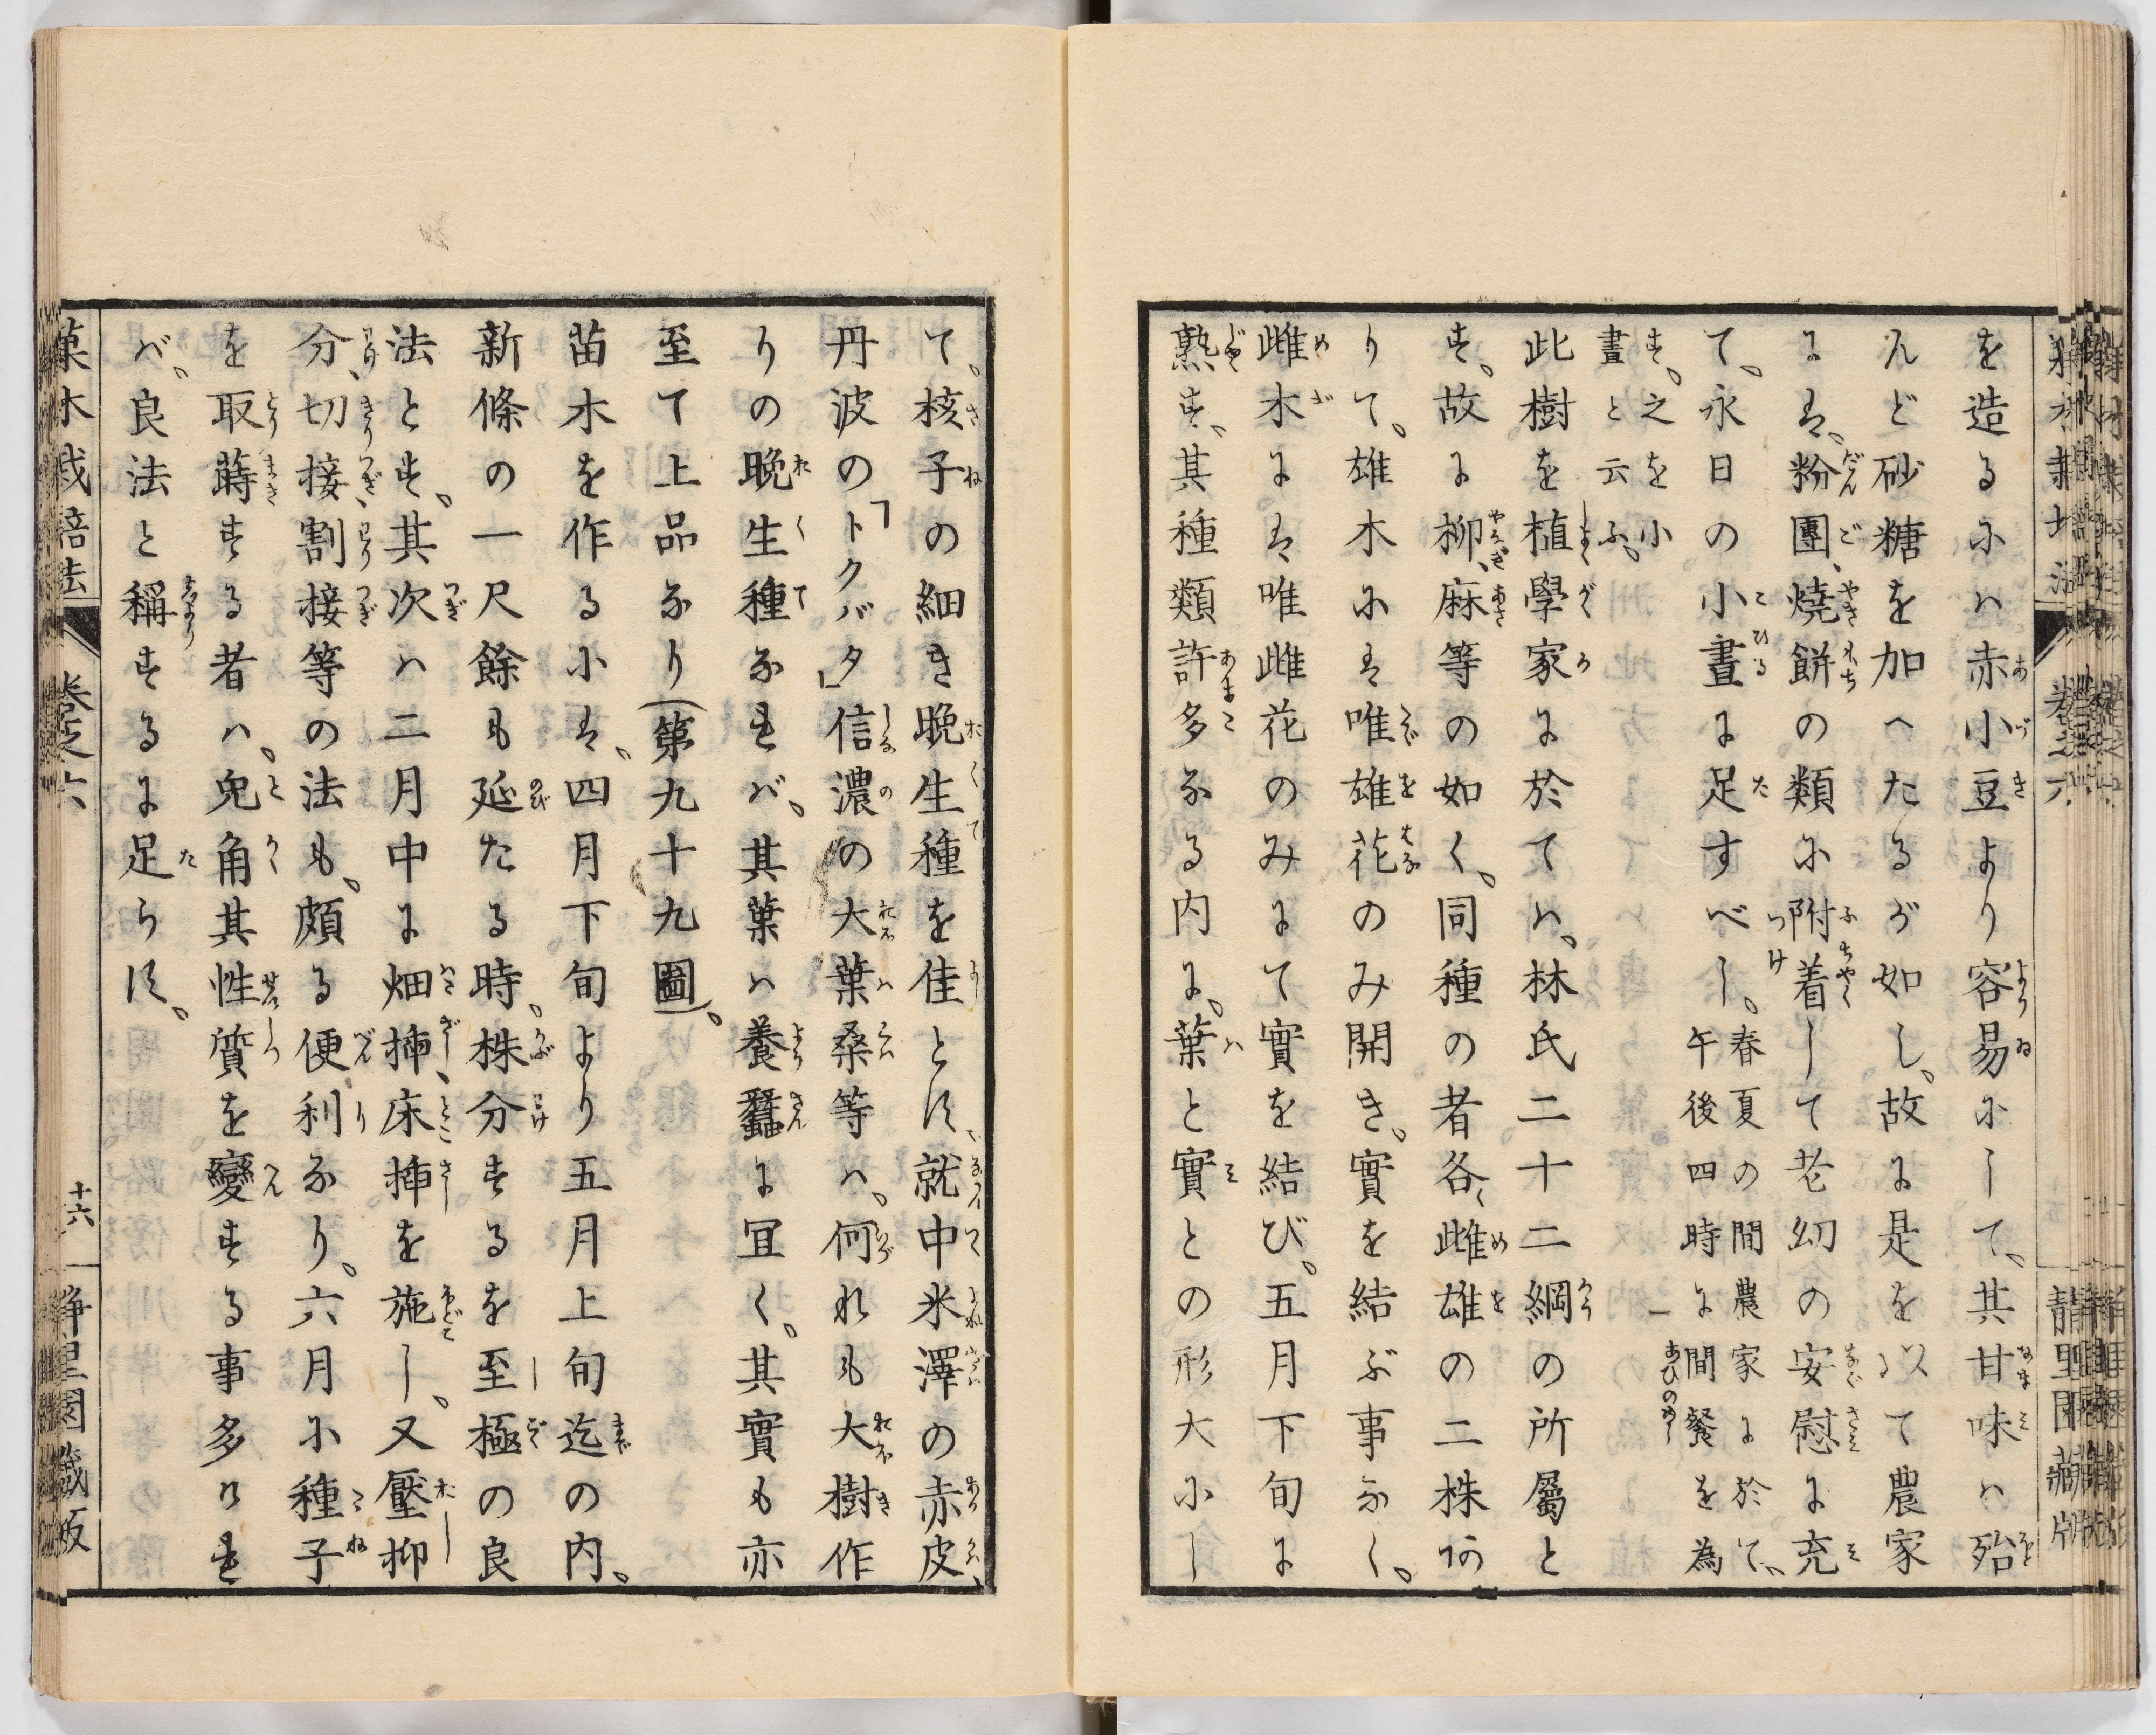 を造るにハ赤小豆より容易にして、其甘味ハ殆
んど砂糖を加へたるが如し、故に是を以て農家
にて、粉團、燒餅の類に附着して老幼の安慰に充
て、永日の小晝に足すべし。
春夏の間農家に於て、
午後四時に間餐を為
す。之を小
晝と云ふ。
此樹を植學家に於てハ、林氏二十二綱の所屬と
す。故に柳、麻等の如く、同種の者各〻雌雄の二株あ
りて。雄木にハ唯雄花のみ開き、實を結ぶ事なく。
雌木にハ唯雌花のみにて實を結び。五月下旬に
熟す、其種類許多なる内に。葉と實との形大にし
て、核子の細き晩生種を佳とす、就中米澤の赤皮、
丹波の「トクバタ」信濃の大葉桑等ハ。何れも大樹作
りの晩生種なれバ。其葉ハ養蠶に宜く。其實も亦
至て上品なり(第九十九圖)。
苗木を作るにハ、四月下旬より五月上旬迄の内。
新條の一尺餘も延たる時。株分するを至極の良
法とす。其次ハ二月中に畑挿、床挿を施し、又壓抑
分、切接、割接等の法も。頗る便利なり。六月に種子
を取蒔する者ハ。兎角其性質を變ずる事多けれ
バ、良法と稱するに足らず。
菓木栽培法
卷之六
十六
靜里園藏版